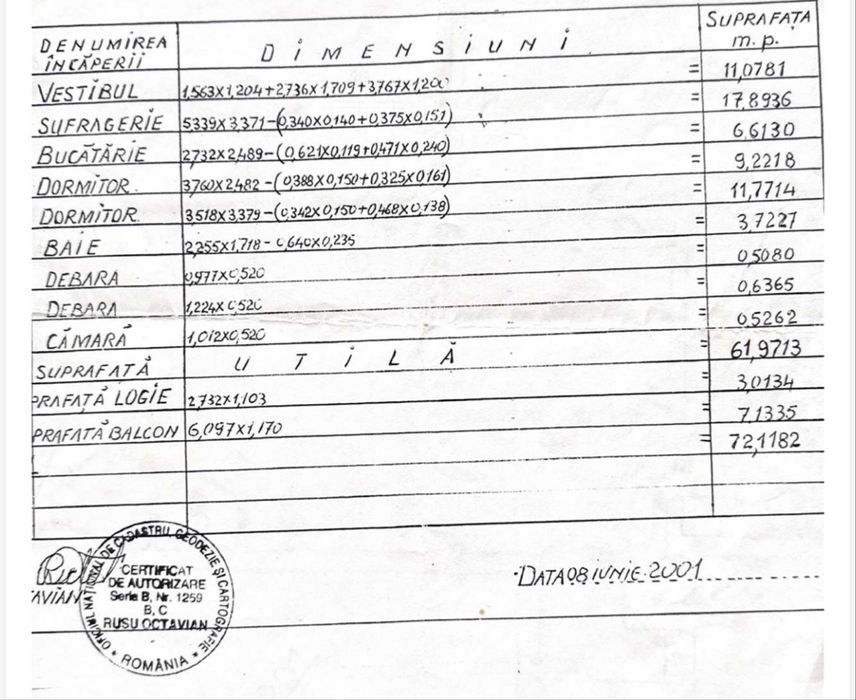 DENUMIREA ÎNCĂPERII DIMENSIUNI SUPRAFAȚA m.p.
VESTIBUL 1,563X1,204+2,736X1,709+3,767X1,200 = 11,0781
SUFRAGERIE 5339X3,371-(0,340X0,140+0,375X0,151) = 17,8936
BUCĂTĂRIE 2,732X2,489-(0,621X0,119+0,471X0,240) = 6,6130
DORMITOR 3,760X2,482-(0,388X0,150+0,325X0,161) = 9,2218
DORMITOR 3,518X3,379-(0,342X0,150+0,468X0,138) = 11,7714
BAIE 2,255X1,718-0,640X0,235 = 3,7227
DEBARA 0,977X0,520 = 0,5080
DEBARA 1,224X0,520 = 0,6365
CĂMARĂ 1,012X0,520 = 0,5262
SUPRAFATĂ UTILĂ = 61,9713
PRAFAȚĂ LOGIE 2,732X1,103 = 3,0134
PRAFATĂ BALCON 6,097X1,170 = 7,1335
= 72,1182
AVIAN
OFICIUL NAȚIONAL DE CADASTRU, GEODEZIE ȘI CARTOGRAFIE
CERTIFICAT
DE AUTORIZARE
Seria B, Nr. 1259
B, C
RUSU OCTAVIAN
* ROMÂNIA *
DATA 08 IUNIE 2001